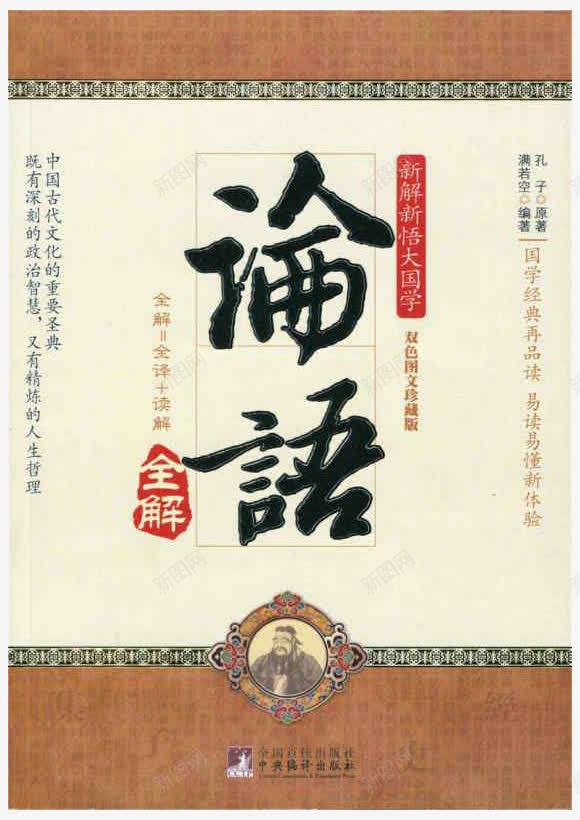 孔 子 原著
满若空 编著
国学经典再品读 易读易懂新体验
新解新悟大国学
双色图文珍藏版
論語
全解
全解=全译+读解
中国古代文化的重要圣典
既有深刻的政治智慧，又有精炼的人生哲理
全国百佳出版社
中央编译出版社
Central Compilation & Translation Press
CCTP